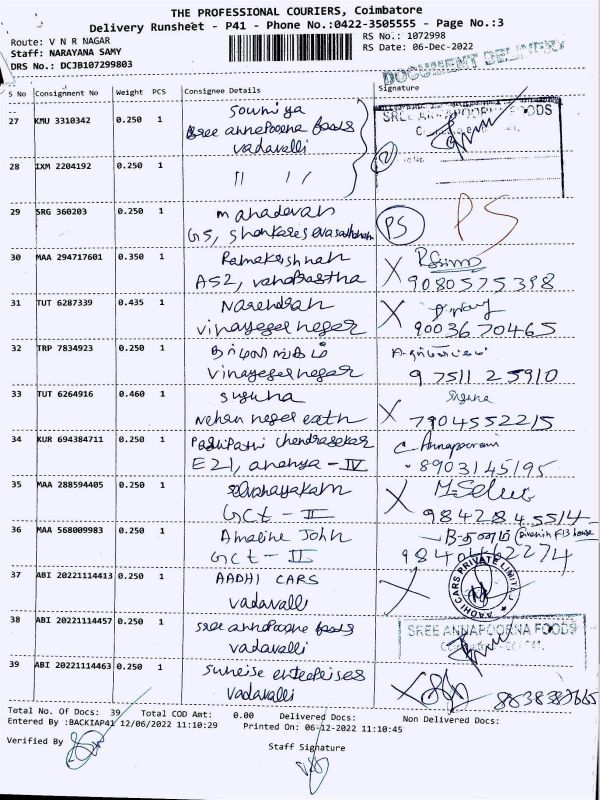 THE PROFESSIONAL COURIERS, Coimbatore
Delivery Runsheet - P41 - Phone No.:0422-3505555 - Page No.:3
Route: V N R NAGAR
RS No.: 1072998
Staff: NARAYANA SAMY
RS Date: 06-Dec-2022
DRS No.: DCJB107299803
DOCUMENT DELIVERY
S No Consignment No Weight PCS Consignee Details Signature
27 KMU 3310342 0.250 1 Soumiya
Sree annapoorna foods
vadavalli
SREE ANNAPOORNA FOODS
28 IXM 2204192 0.250 1 " "
29 SRG 360203 0.250 1 mahadevan
G5, PS PS
30 MAA 294717601 0.350 1 Ramakrishnan
A52, vanaprastha 9080575398
31 TUT 6287339 0.435 1 Narendran
vinayagar nagar 9003670465
32 TRP 7834923 0.250 1
vinayagar nagar 97511 25910
33 TUT 6264916 0.460 1 Suguna Suguna
Nehru nagar 7904552215
34 KUR 694384711 0.250 1 Pashipathi Chandrasekar C. Annapoorani
E21, ananya - IV 8903145195
35 MAA 288594405 0.250 1 Selvanayakam M. Selvi
GCT - II 9842845514
36 MAA 568009983 0.250 1 Amaline John
GCT - II
37 ABI 20221114413 0.250 1 AADHI CARS
vadavalli
AADHI CARS PRIVATE LIMITED
38 ABI 20221114457 0.250 1 Sree annapoorna foods
vadavalli
SREE ANNAPOORNA FOODS
39 ABI 20221114463 0.250 1 Sunrise enterprises
vadavalli
Total No. Of Docs: 39 Total COD Amt: 0.00 Delivered Docs: Non Delivered Docs:
Entered By :BACKIAP41 12/06/2022 11:10:29 Printed On: 06-12-2022 11:10:45
Verified By
Staff Signature